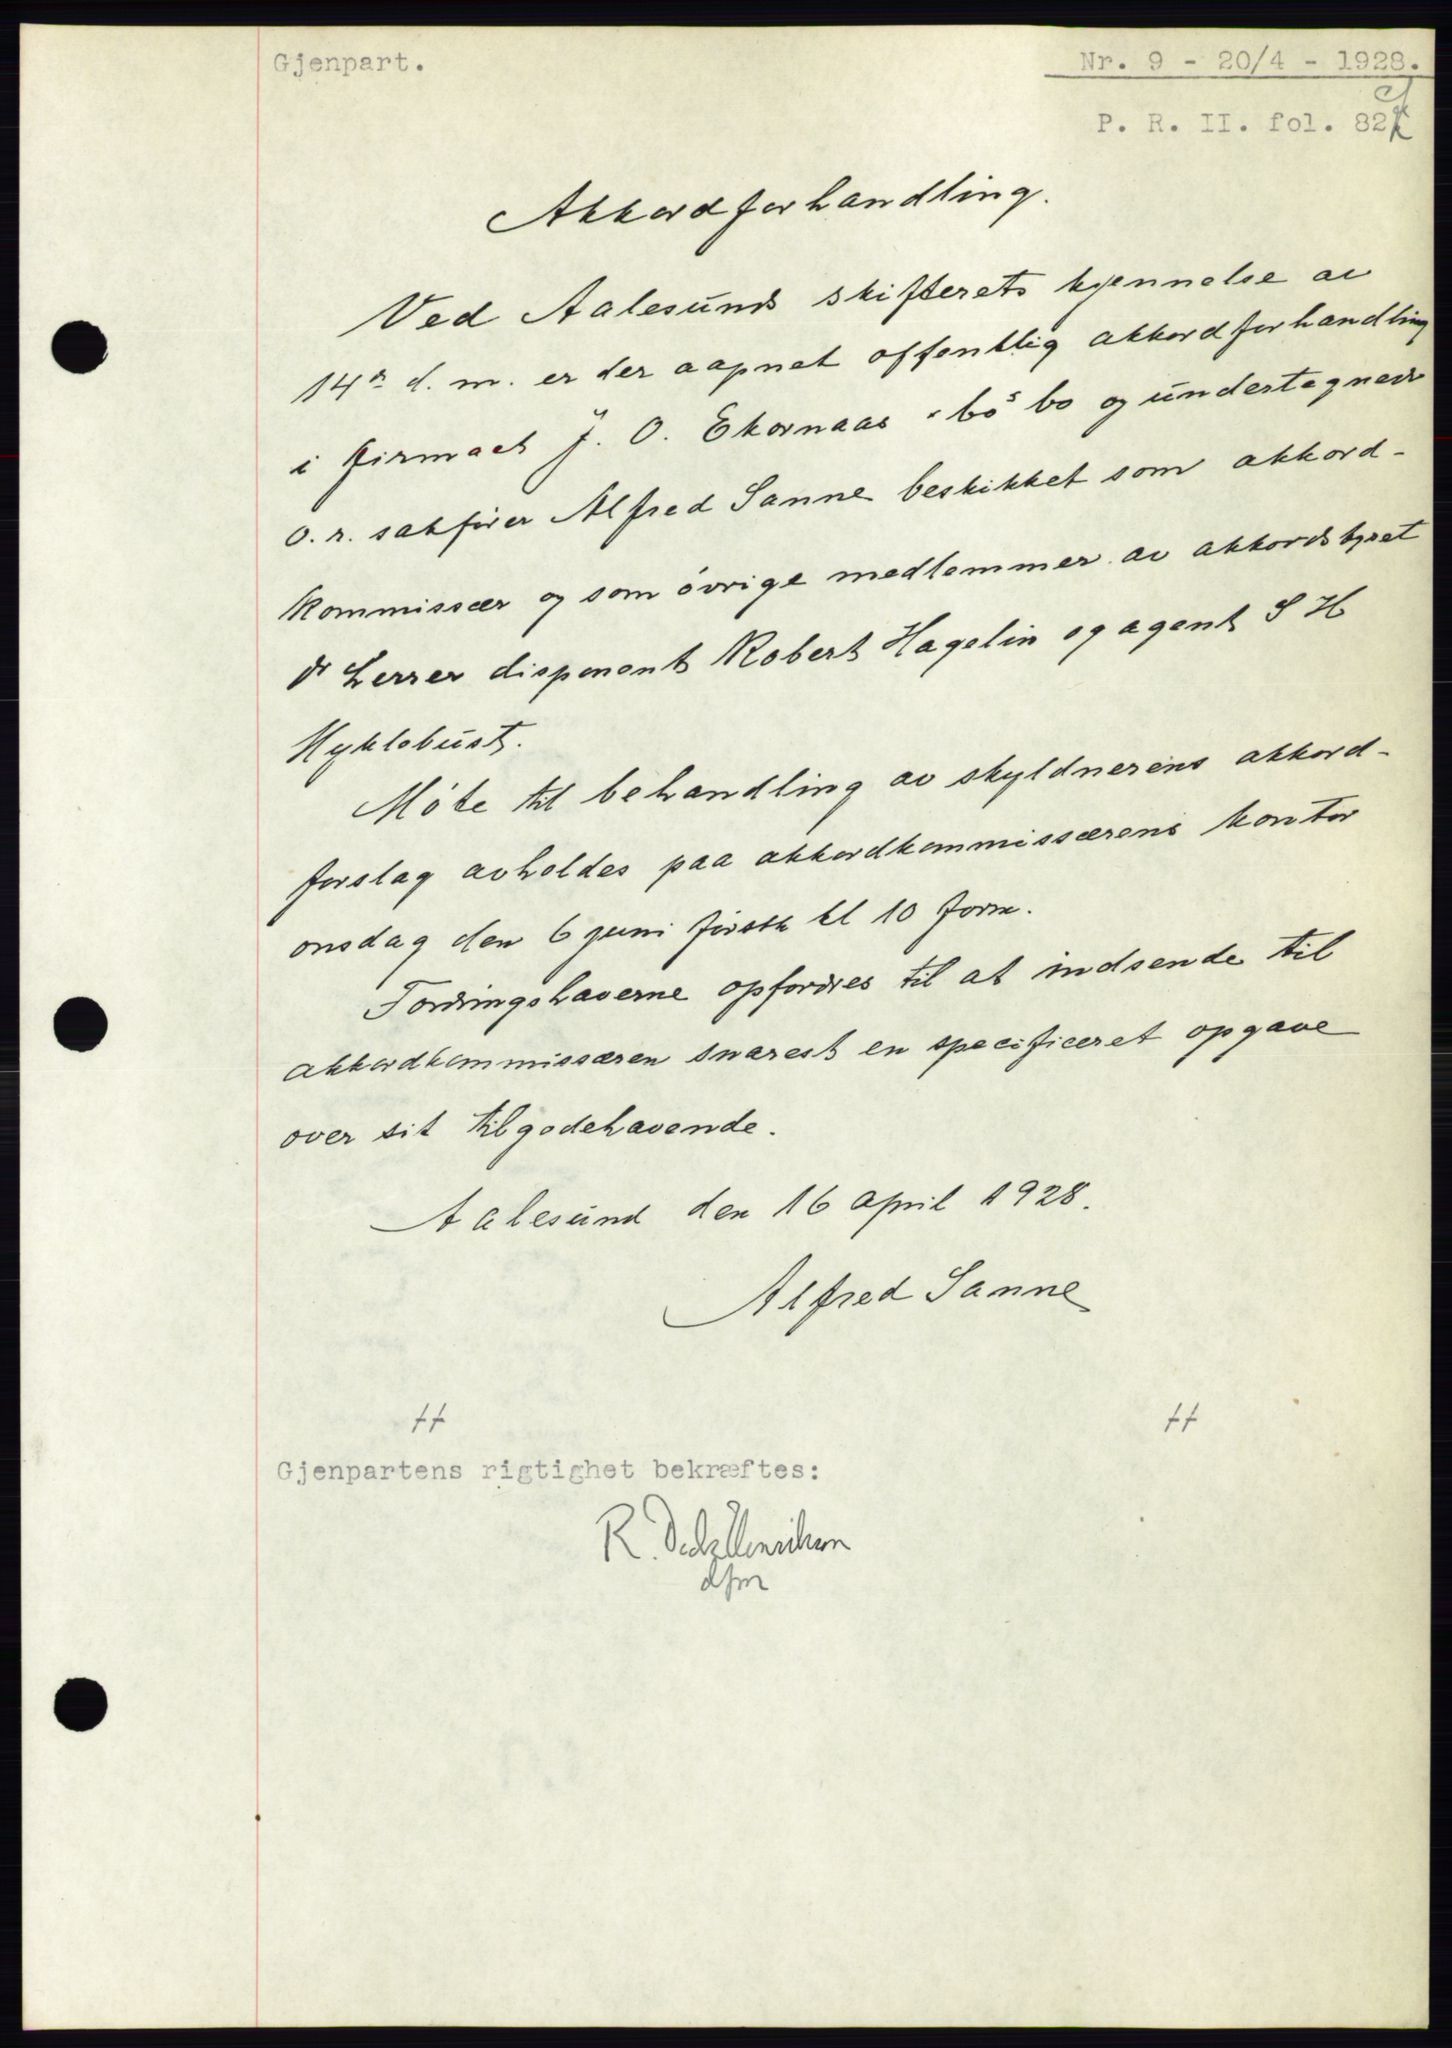 Gjenpart.
Nr. 9 - 20/4 - 1928.
P. R. II. fol. 82
Akkordforhandling.
Ved Aalesunds skifterets kjennelse av
14de d. m. er der aapnet offentlig akkordforhandling
i firmaet J. O. Ekornaas bo og undertegnede
o. r. sakfører Alfred Sanne beskikket som akkord-
kommissær og som øvrige medlemmer av akkordstyret
herrer disponent Robert Hagelin og agent S H
Myklebust.
Møte til behandling av skyldnerens akkord-
forslag avholdes paa akkordkommissærens kontor
onsdag den 6 juni først kl 10 form.
Fordringshaverne opfordres til at indsende til
akkordkommissæren snarest en specificeret opgave
over sit tilgodehavende.
Aalesund den 16 april 1928.
Alfred Sanne
Gjenpartens rigtighet bekræftes:
R.
dfm